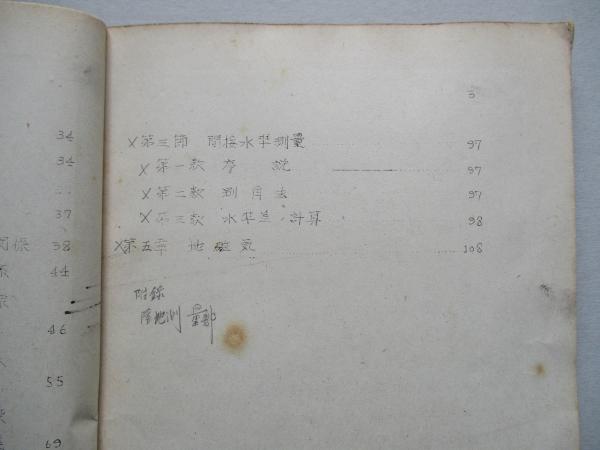 34
34
37
関係 38
44
46
55
69
3
X第三節 間接水準測量 97
X第一款 序 説 97
X第二款 測角法 97
X第三款 水準差ノ計算 98
X第五章 地磁気 108
附録
陸地測量部